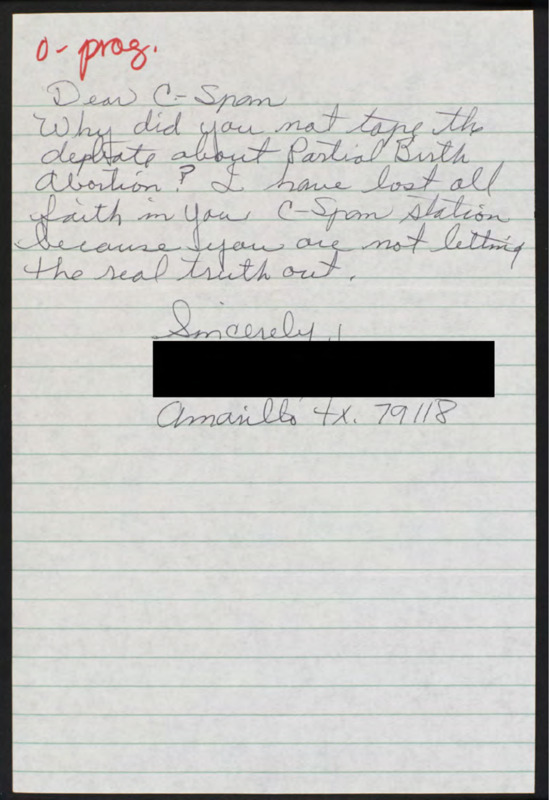 o-prog.
Dear C-Span
Why did you not tape th
depbate about Partial Birth
Abortion? I have lost all
faith in you C-Span station
because you are not letting
the real truth out.
Sincerely,
Amarillo tx. 79118